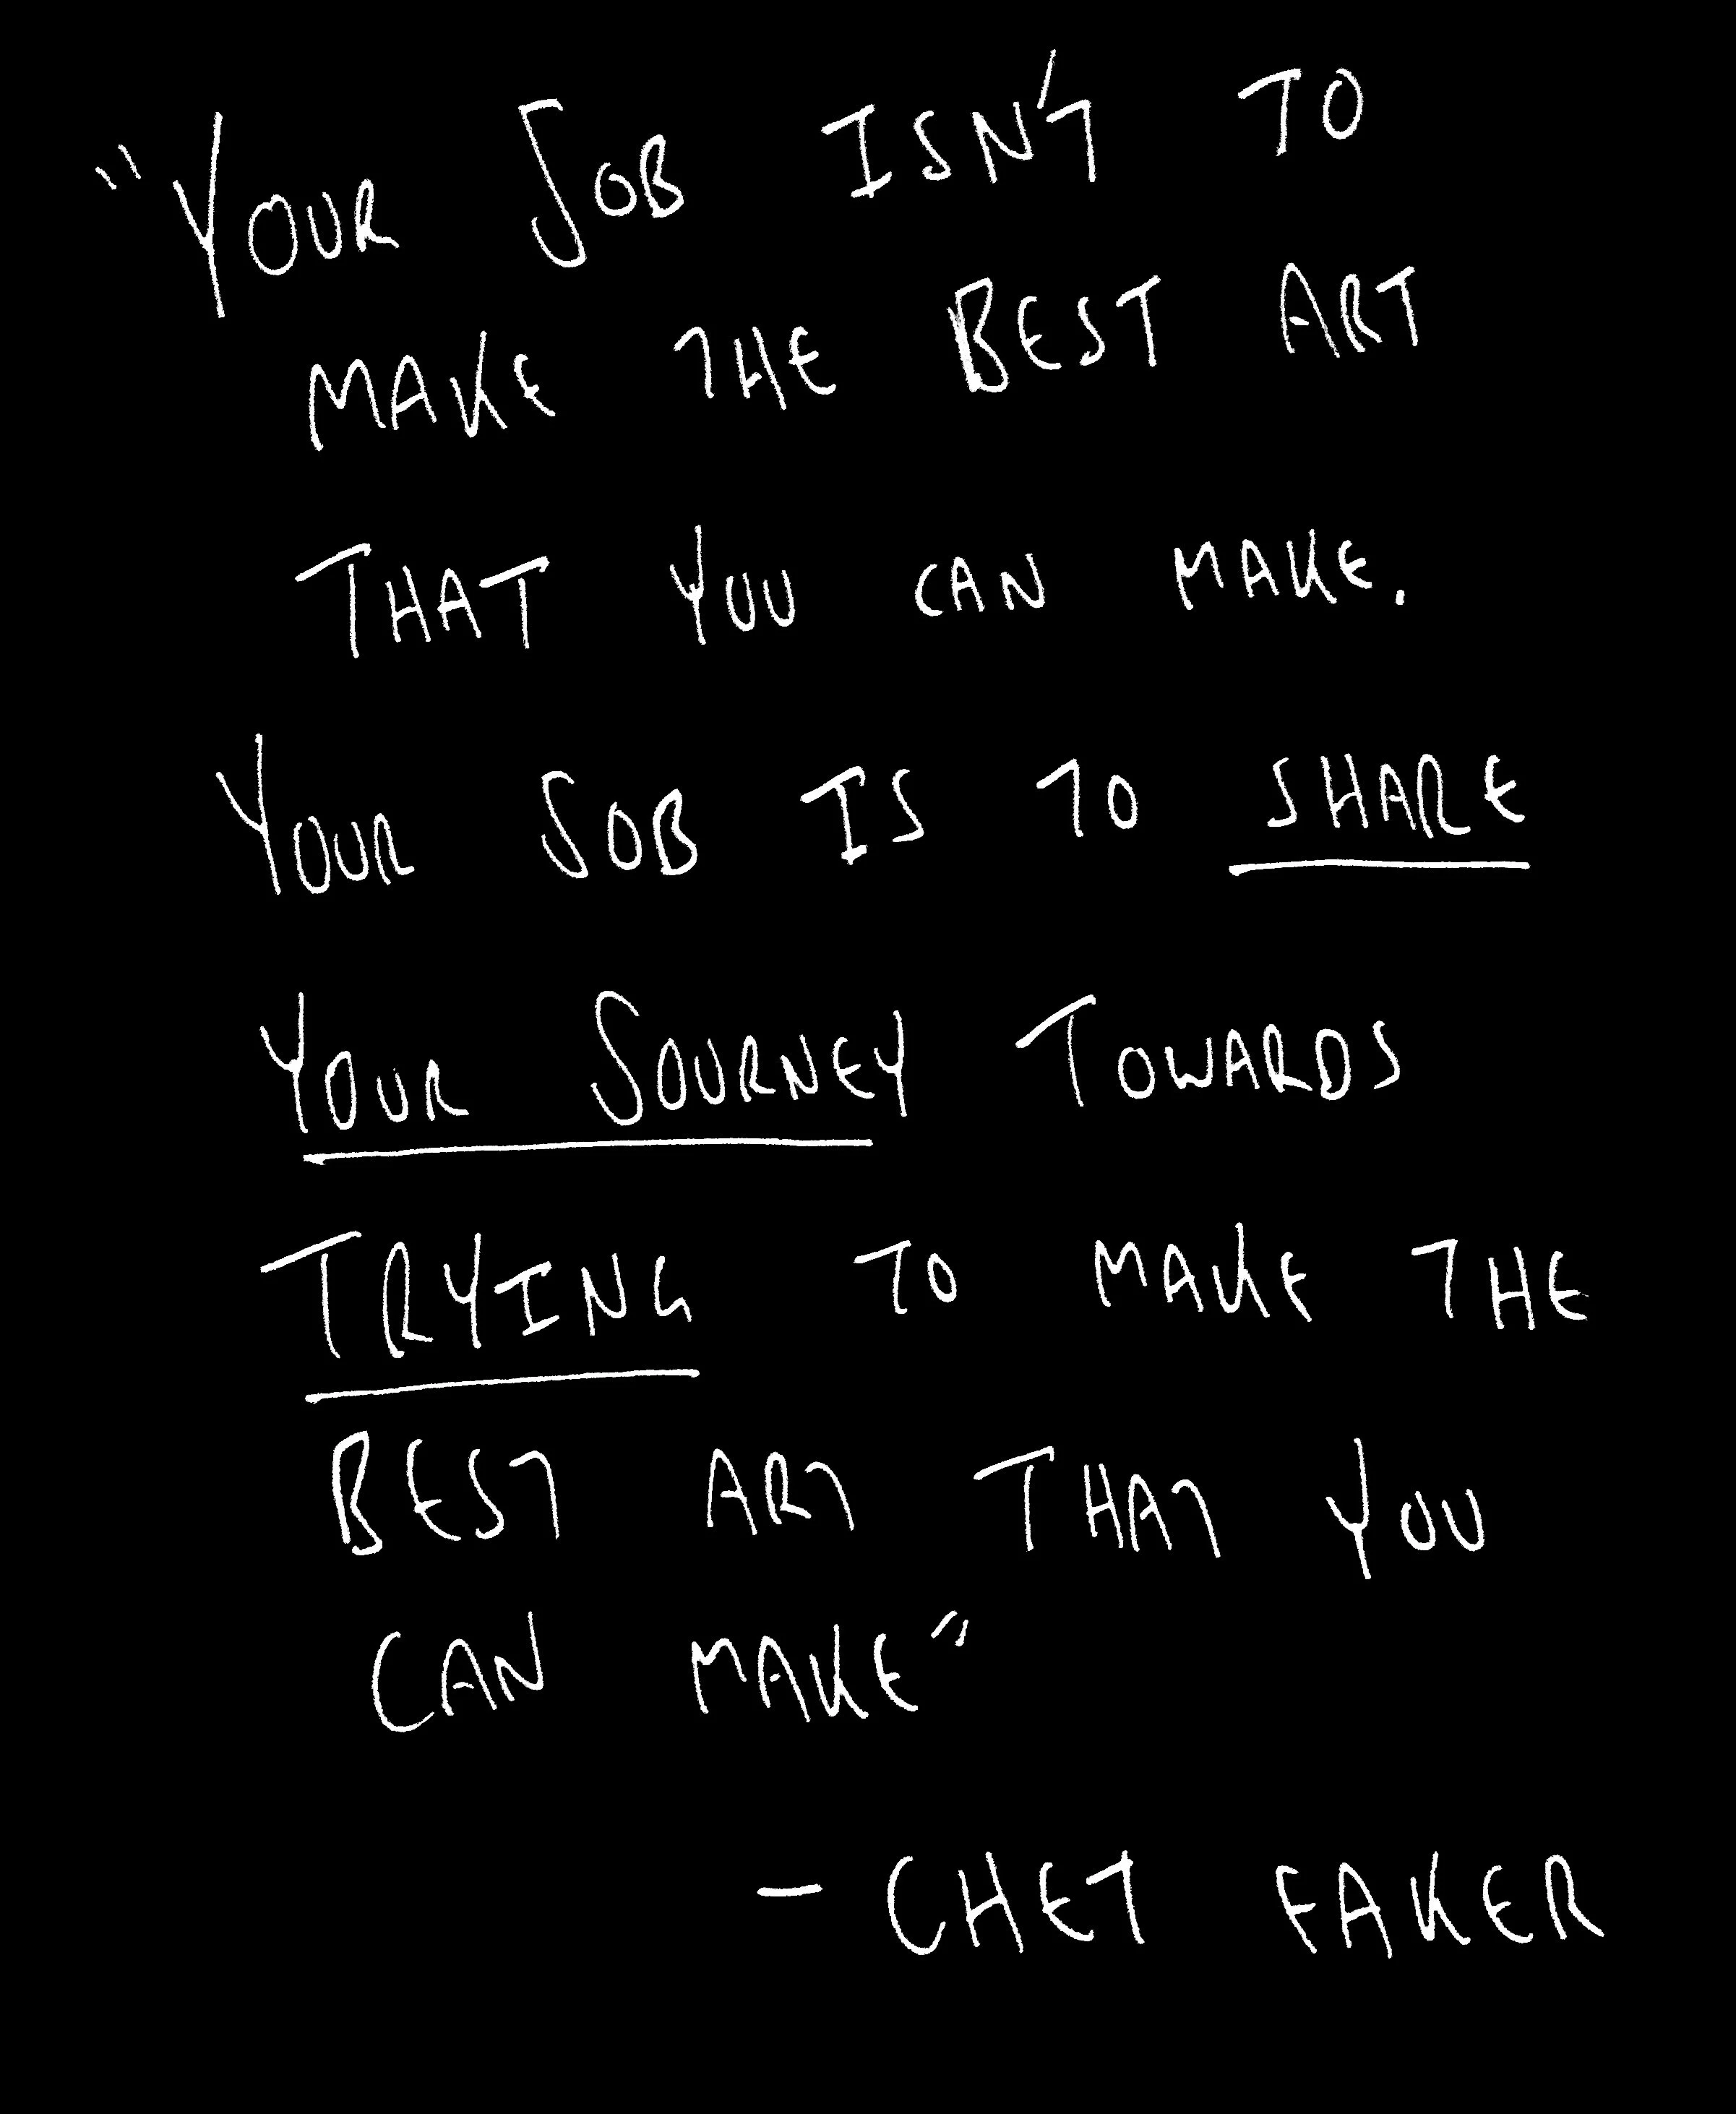 "YOUR JOB ISN'T TO
MAKE THE BEST ART
THAT YOU CAN MAKE.
YOUR JOB IS TO SHARE
YOUR JOURNEY TOWARDS
TRYING TO MAKE THE
BEST ART THAT YOU
CAN MAKE"
- CHET FAKER